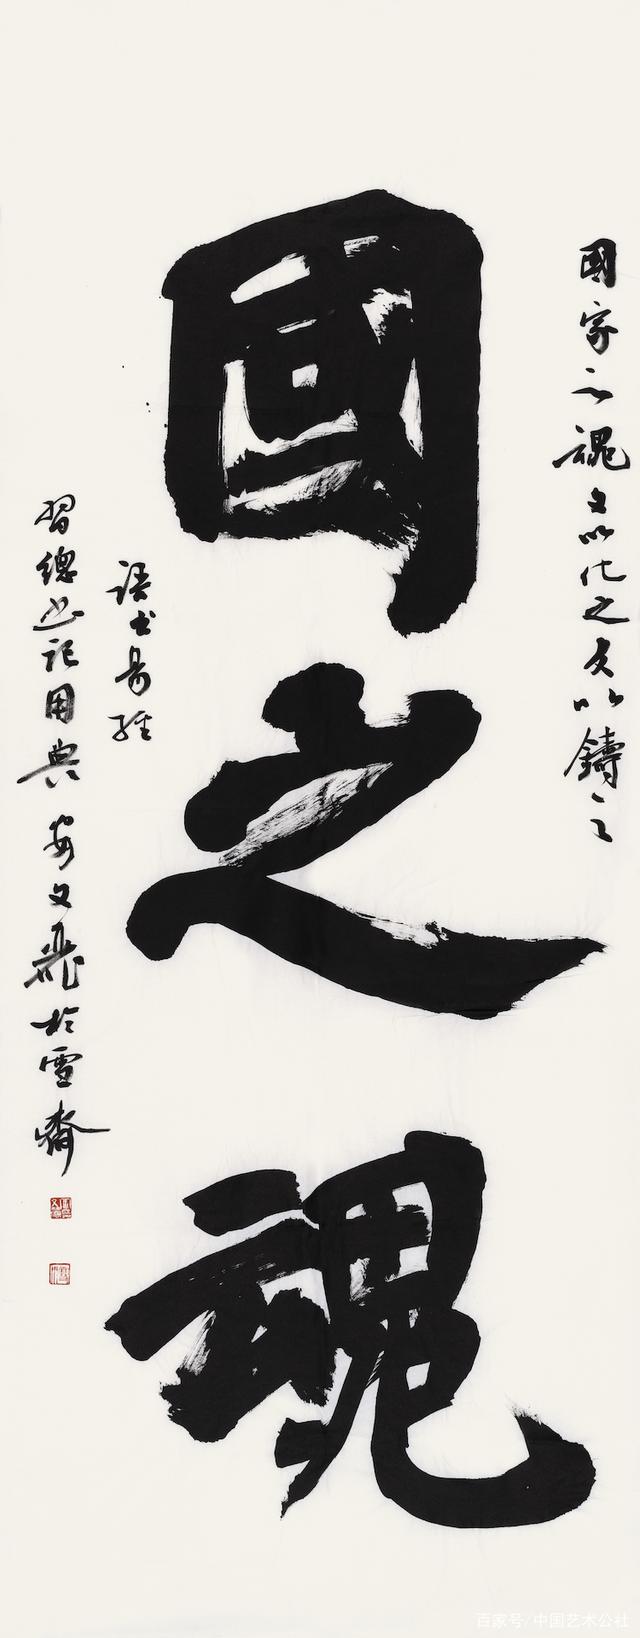 國家之魂文以化之文以鑄之
國之魂
語出易經
習總书記用典 文飛於雪齋
百家号/中国艺术公社